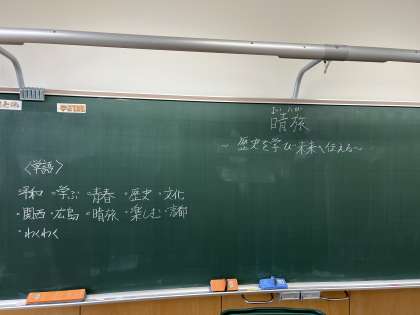 晴旅
~歴史を学び未来へ伝える~
〈単語〉
平和・学ぶ・青春・歴史・文化
・関西・広島・晴旅・楽しむ・京都
・わくわく